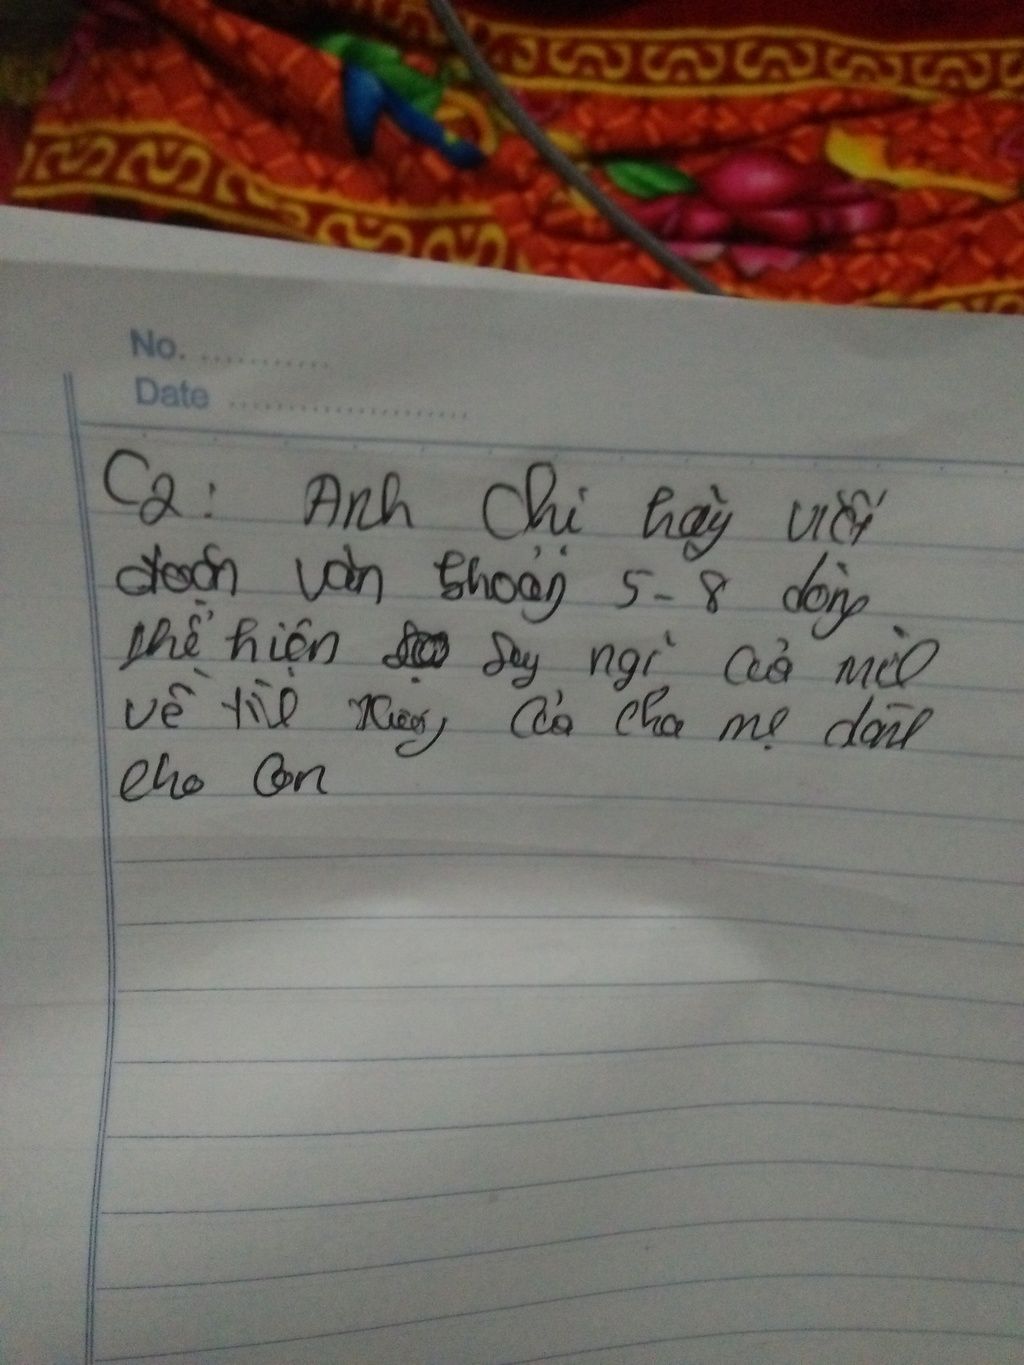 No. ...........
Date ......................
C2: Anh Chi hãy viết
đoạn văn khoảng 5-8 dòng
thể hiện suy ngĩ của mìh
về tìh của cha mẹ dàh
cho con